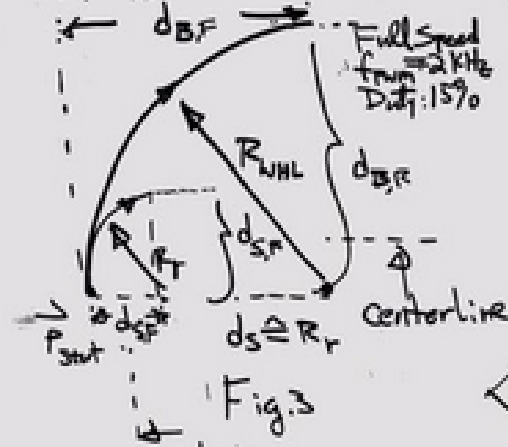 d_B,F
Full Speed
f_pwm = 2 KHz
Duty: 15%
R_WHL
d_B,R
d_S,R
R_r
Centerline
P_Start
d_S,F
d_S ≙ R_r
Fig. 3